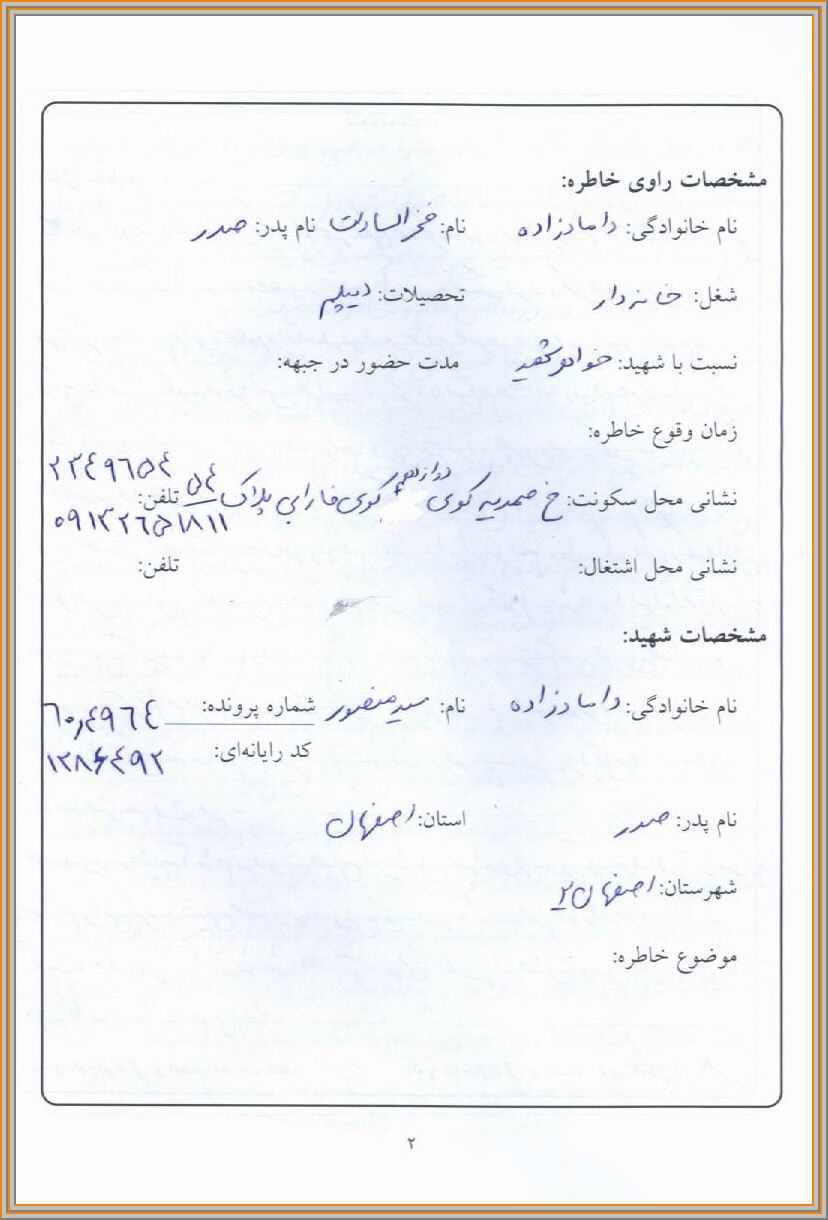 مشخصات راوی خاطره:
نام خانوادگی: دامادزاده نام: فخرالسادات نام پدر: صدر
شغل: خانه دار تحصیلات: دیپلم
نسبت با شهید: خواهر شهید مدت حضور در جبهه:
زمان وقوع خاطره:
نشانی محل سکونت: خ صمدیه کوی دوازدهم کوی فارابی پلاک ۵۴ تلفن: ۲۲۴۹۶۵۴
۰۹۱۳۲۶۵۱۸۱۱
نشانی محل اشتغال: تلفن:
مشخصات شهید:
نام خانوادگی: دامادزاده نام: سید منصور شماره پرونده: ۶۰٫۴۹۶۴
کد رایانه‌ای: ۱۲۸۶۴۹۲
نام پدر: صدر استان: اصفهان
شهرستان: اصفهان ۲
موضوع خاطره:
۲